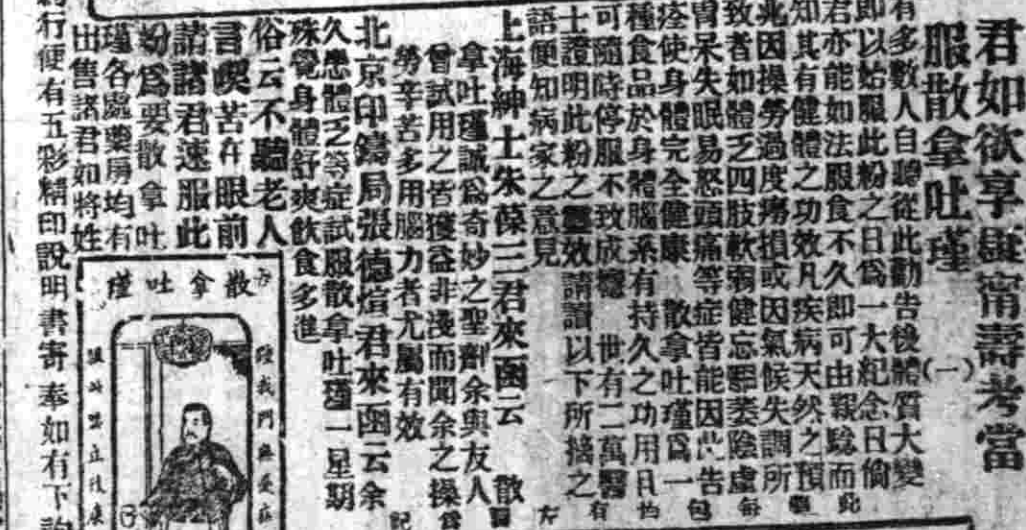 君如欲享康甯壽考當
服散拿吐瑾 (一)
有多數人自聽從此勸告後體質大變
即以始服此粉之日爲一大紀念日倘
君亦能如法服食不久即可由親驗而
知其有健體之功效凡疾病天然之預
兆因操勞過度癆損或因氣候失調所
致者如體乏四肢軟弱健忘 萎陰虛
胃呆失眠易怒頭痛等症皆能因此告
痊使身體完全健康 散拿吐瑾爲一
種食品於身體腦系有持久之功用日
可隨時停服不致成癮 世有二萬醫
士證明此粉之靈效請讀以下所摘之
語便知病家之意見
上海紳士朱葆三君來函云 散
拿吐瑾誠爲奇妙之聖劑余與友人
曾試用之皆獲益非淺而聞余之操
勞辛苦多用腦力者尤屬有效
北京印鑄局張德煊君來函云余
久患體乏等症試服散拿吐瑾一星期
殊覺身體舒爽飲食多進
俗云不聽老人
言喫苦在眼前
請諸君速服此
粉爲要散拿吐
瑾各處藥房均有
出售諸君如將姓
行便有五彩精印說明書寄奉如有下
散拿吐瑾